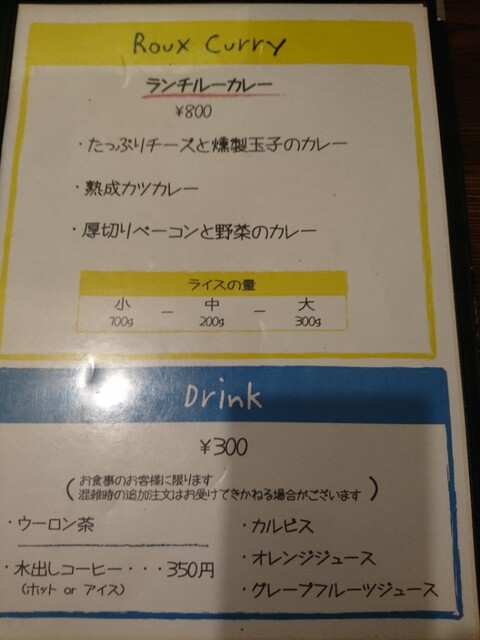 Roux Curry
ランチルーカレー
¥800
・たっぷりチーズと燻製玉子のカレー
・熟成カツカレー
・厚切りベーコンと野菜のカレー
ライスの量
小 － 中 － 大
100g 200g 300g
Drink
¥300
（お食事のお客様に限ります
混雑時の追加注文はお受けできかねる場合がございます）
・ウーロン茶
・水出しコーヒー・・・350円
（ホット or アイス）
・カルピス
・オレンジジュース
・グレープフルーツジュース